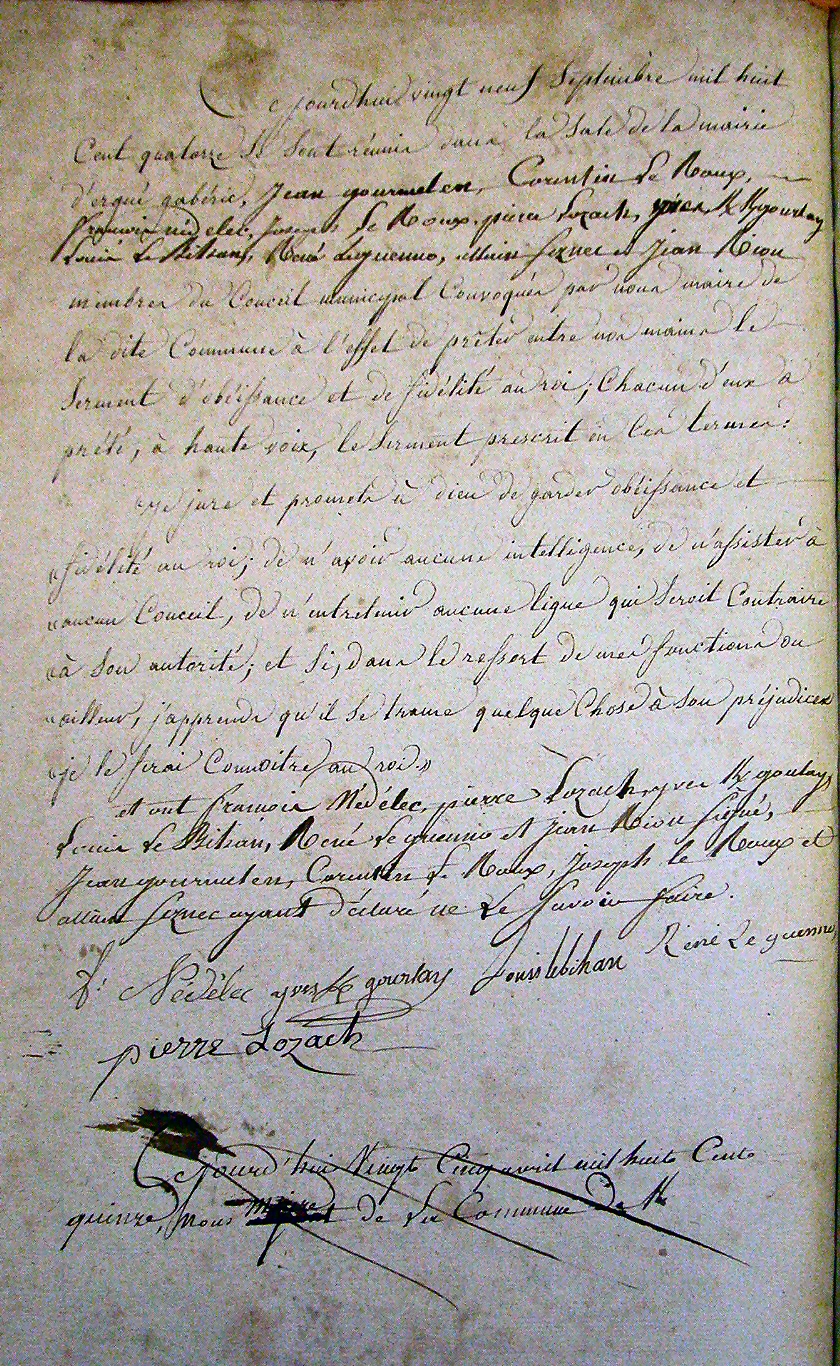 Cejourdhui vingt neuf Septembre mil huit
Cent quatorze se sont réunis dans la Sale de la mairie
d'ergué gabéric, Jean gourmelen, Corentin Le Roux,
françois nédelec, Joseph Le Roux, pierre Lozach, yves K/gourlay
Louis Le Bihan, René Leguenno, allain feznec et Jean Riou
membres du Conceil municipal Convoqués par nous maire de
la dite Commune à l'effet de prêter entre nos mains le
Serment d'obéissance et de fidélité au roi; Chacun d'eux à
prêté, à haute voix, le Serment prescrit en Ces termes:
"Je jure et promets à dieu de garder obéissance et
"fidélité au roi; de n'avoir aucune intelligence, de n'assister à
"aucun Conceil, de n'entretenir aucune ligue qui Seroit Contraire
"à Son autorité; et Si, dans le ressort de mes fonctions ou
"ailleurs, j'apprends qu'il Se trame quelque Chose à Son préjudice
"je le ferai Connoître au roi"
et ont françois Nédélec, pierre Lozach, yves K/gourlay,
Louis Le Bihan, René Le guenno et Jean Riou Signé,
Jean gourmelen, Corentin Le Roux, Joseph le Roux et
allain feznec ayant déclaré ne le Savoir faire.
f: Nédélec yves K/gourlay Louis lebihan René Le guenno
pierre Lozach
Cejourd'hui Vingt Cinq avril mil huit Cent
quinze, Nous maire de La Commune De K